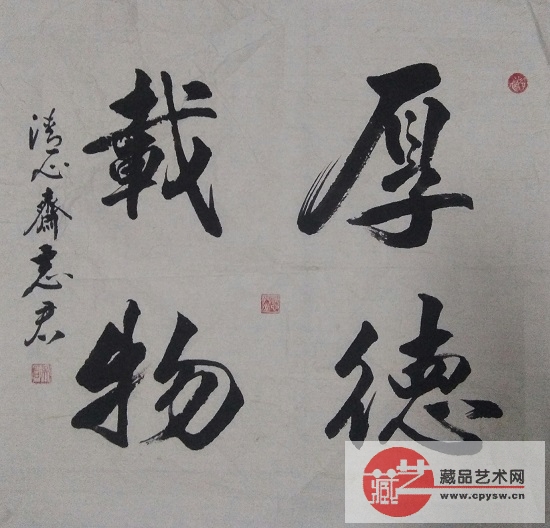 厚德
載物
清心齋志君
藏品艺术网
www.cpysw.cn